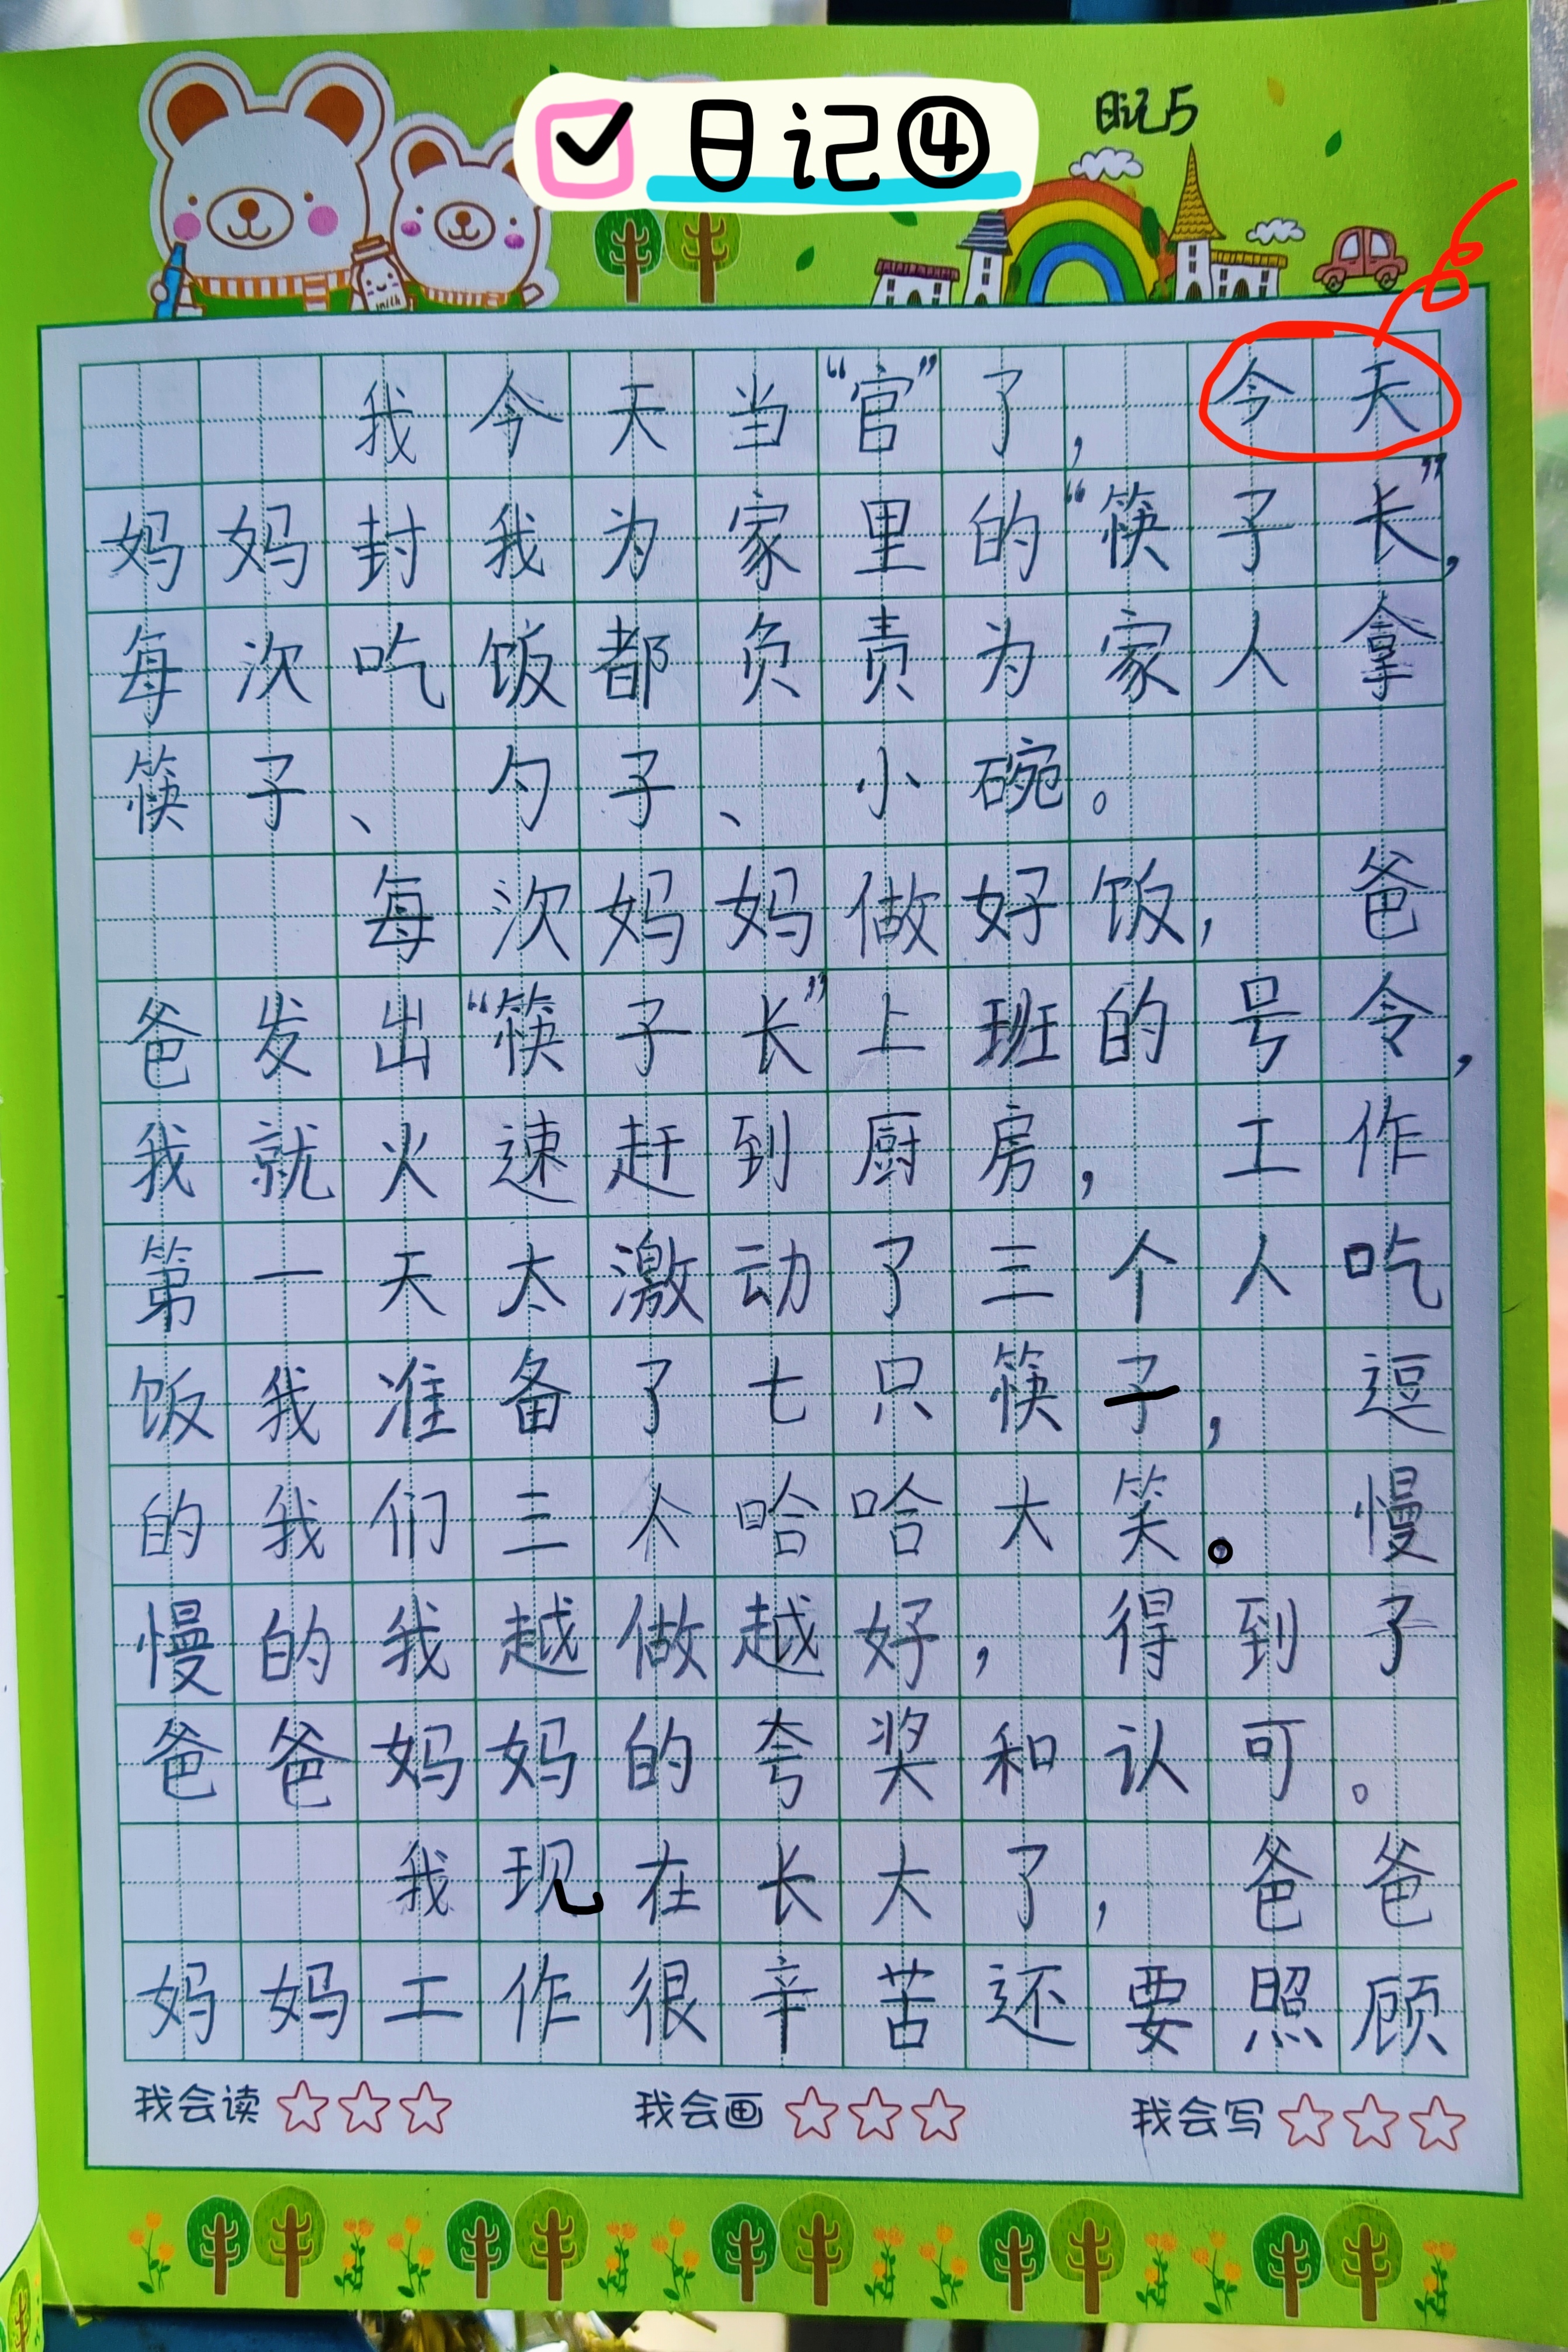 日记④
日记5
我今天当“官”了，今天
妈妈封我为家里的“筷子长”，
每次吃饭都负责为家人拿
筷子、勺子、小碗。
每次妈妈做好饭，爸
爸发出“筷子长”上班的号令，
我就火速赶到厨房，工作
第一天太激动了三个人吃
饭我准备了七只筷子，逗
的我们三人哈哈大笑。慢
慢的我越做越好，得到了
爸爸妈妈的夸奖和认可。
我现在长大了，爸爸
妈妈工作很辛苦还要照顾
我会读 我会画 我会写